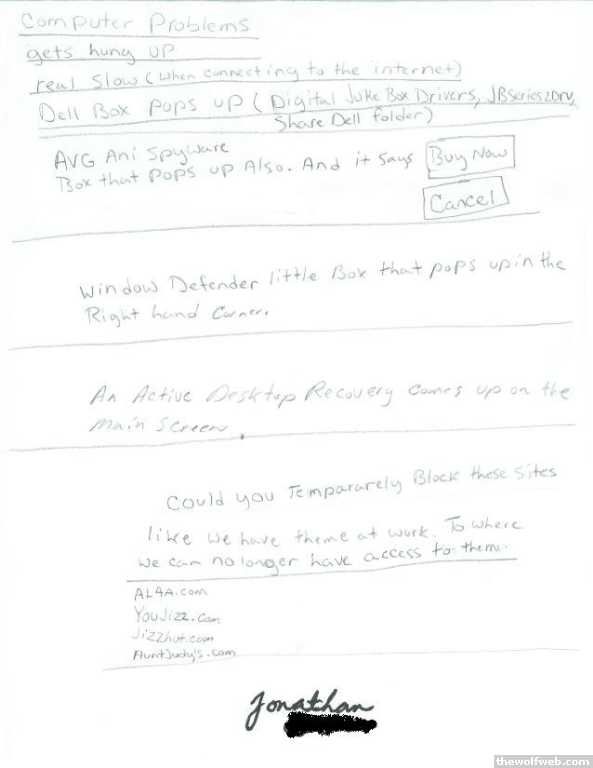 Computer Problems
gets hung up
real slow (when connecting to the internet)
Dell Box pops up (Digital Juke Box Drivers, JBSeries2Drv,
Share Dell folder)
AVG Ani Spyware
Box that pops up Also. And it says Buy Now
Cancel
Window Defender little Box that pops up in the
Right hand Corner.
An Active Desktop Recovery comes up on the
main screen.
Could you Tempararely Block these sites
like we have theme at work. To where
we can no longer have access to them.
AL4A.com
YouJizz.com
Jizzhut.com
AuntJudy's.com
Jonathan
thewolfweb.com